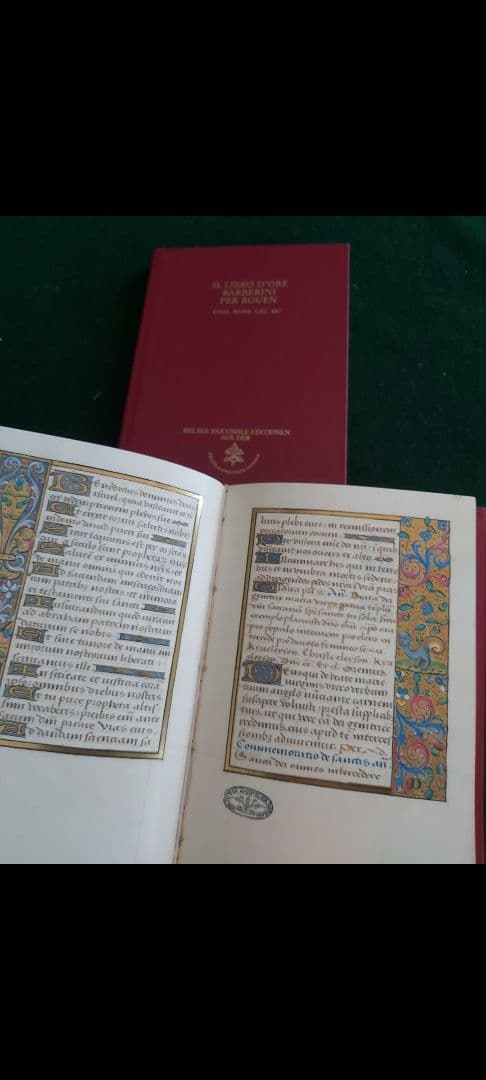 IL LIBRO D'ORE
BARBERINI
PER ROUEN
COD. BARB. LAT. 487
BELSER FAKSIMILE EDITIONEN
AUS DER
Benedictus dominus deus
israel: quia visitavit et fe
cit redemptionem plebis sue
Et erexit cornu salutis nobis
in domo david pueri sui
Sicut locutus est per os scto
a seculo sunt prophetar eius
Salute ex inimicis nris: et
de manu omniu qui oderut nos
Ad faciendam misericordiam
cum patribs nostris et memorari
testamenti sui sancti
Iusiurandum quod iuravit
ad abraham patre nostrum
daturum se nobis
Ut sine timore de manu ini
micorum nostrorum liberati
serviamus illi
In sactitate et iusticia cora
ipso: omnibus diebus nostris
Et tu puer propheta altis
simi vocaberis: preibis em ante
faciem dni parare vias eius
Ad dandam scientiam sa
lutis plebi eius: in remissionem
peccatorum eorum
Per viscera mie dei nri: i quib
visitavit nos oriens ex alto
Illuminare his qui in tene
bris et in umbra mortis sedent:
ad dirigendos pedes nros i viā pacis
Gloria pri An. Beata dei
genitrix maria virgo perpetua
pro populo interveni pro clero in
tercede pro devoto femineo sexu
Kyrieleyson. Christeleyson. Kyri
eleyson. Oremus.
Deus qui de beate marie
virginis utero verbum
tuum angelo nunciante carnem
suscipere voluisti: presta supplicib
tuis, ut qui vere eā dei genitrice
credimus eius apud te interces
sionib adiuvemur. per
Commemoratio de sanctis an
Sancti dei omnes intercedere